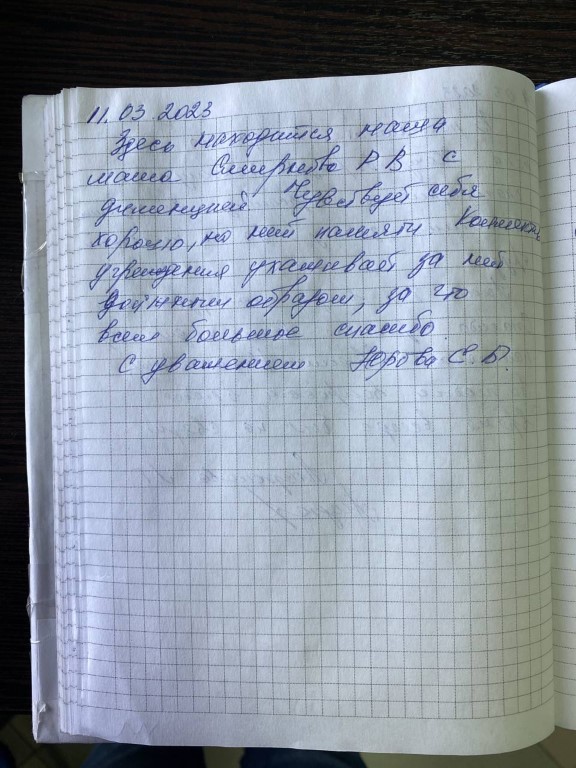 11.03.2023
Здесь находится наша
мама Смирнова Р В с
деменцией Чувствует себя
хорошо, но нет памяти Коллектив
учреждения ухаживает за ней
должным образом, за что
всем большое спасибо.
С уважением Юрова С.В.